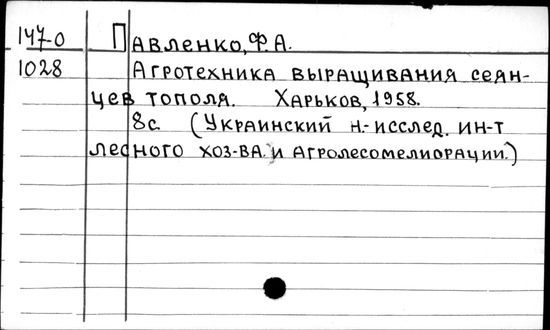 147-0 Павленко, Ф.А.
1028 Агротехника выращивания сеян-
цев тополя. Харьков, 1958.
8с. (Украинский н.-исслед. ин-т
лесного хоз-ва. и агролесомелиорации.)